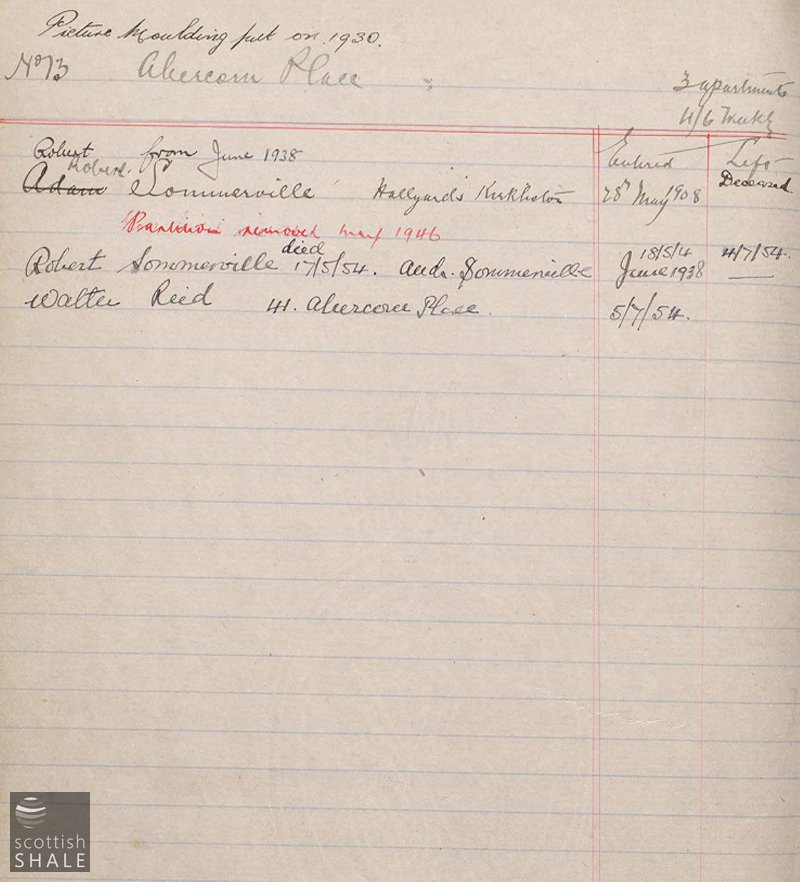 Picture Moulding put on 1930.
No 3 Abercorn Place
3 apartments
4/6 Weekly
Robert from June 1938
Entered Left
Robert.
Adam Sommerville Hallyards Kirkliston 28th May 1908 Deceased.
Partition removed may 1946
died 18/5/4 4/7/54.
Robert Sommerville 17/5/54. Andr. Sommerville June 1938
Walter Reid 41. Abercorn Place. 5/7/54.
scottish
SHALE